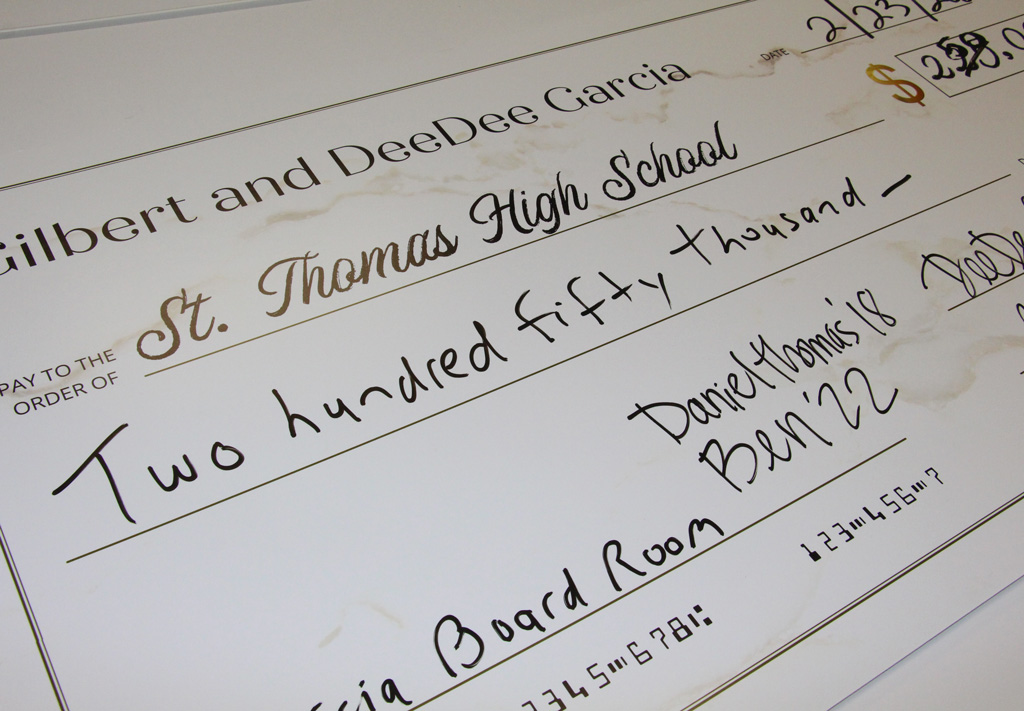 DATE 2/23/2
Gilbert and DeeDee Garcia
$
PAY TO THE
ORDER OF
St. Thomas High School
Two hundred fifty thousand —
Daniel Thomas '18
Ben '22
cia Board Room
2345 678
123 456 7